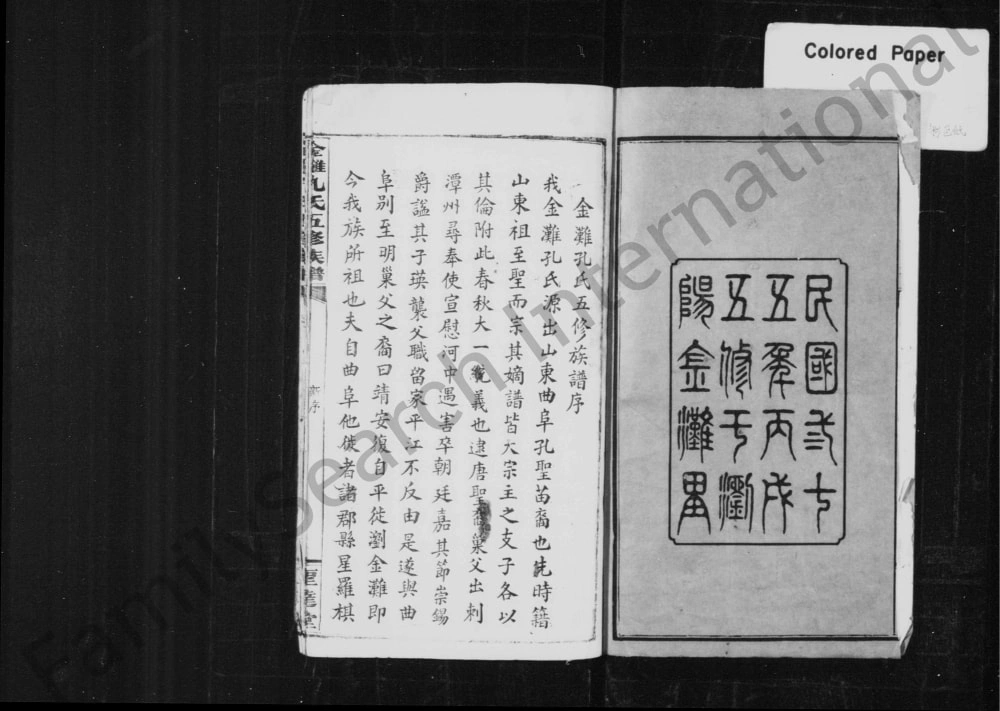 Colored Paper
民國弍十
五年丙戌
五修于瀏
陽金灘里
金灘孔氏五修族譜序
我金灘孔氏源出山東曲阜孔聖苗裔也先時籍
山東祖至聖而宗其嫡譜皆大宗主之支子各以
其倫附此春秋大一統義也逮唐聖裔巢父出刺
潭州尋奉使宣慰河中遇害卒朝廷嘉其節崇錫
爵諡其子瑛襲父職留家平江不反由是遂與曲
阜別至明巢父之裔曰靖安復自平徙瀏金灘即
今我族所祖也夫自曲阜他徙者諸郡縣星羅棋
金灘孔氏五修族譜
序
FamilySearch International